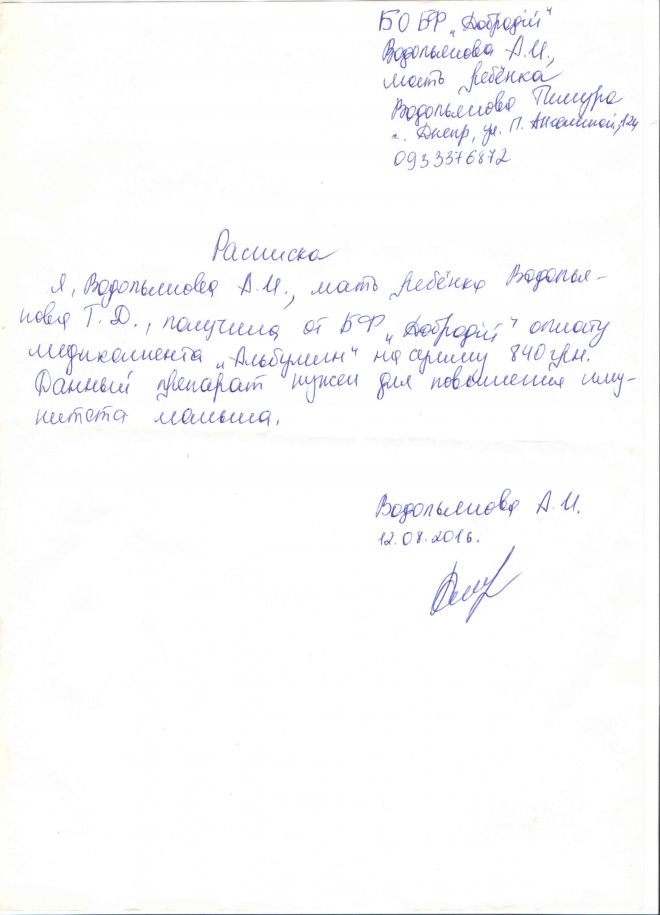 БО БФ „Добродій"
Водопьянова А.И.,
мать ребёнка
Водопьянова Тимура
г. Днепр, ул. П. 12ч
0933376872
Расписка
Я, Водопьянова А.И., мать ребёнка Водопья-
нова Т.Д., получила от БФ „Добродій" оплату
медикамента „Альбумин" на сумму 840 грн.
Данный препарат нужен для повышения имму-
нитета малыша.
Водопьянова А.И.
12.08.2016.